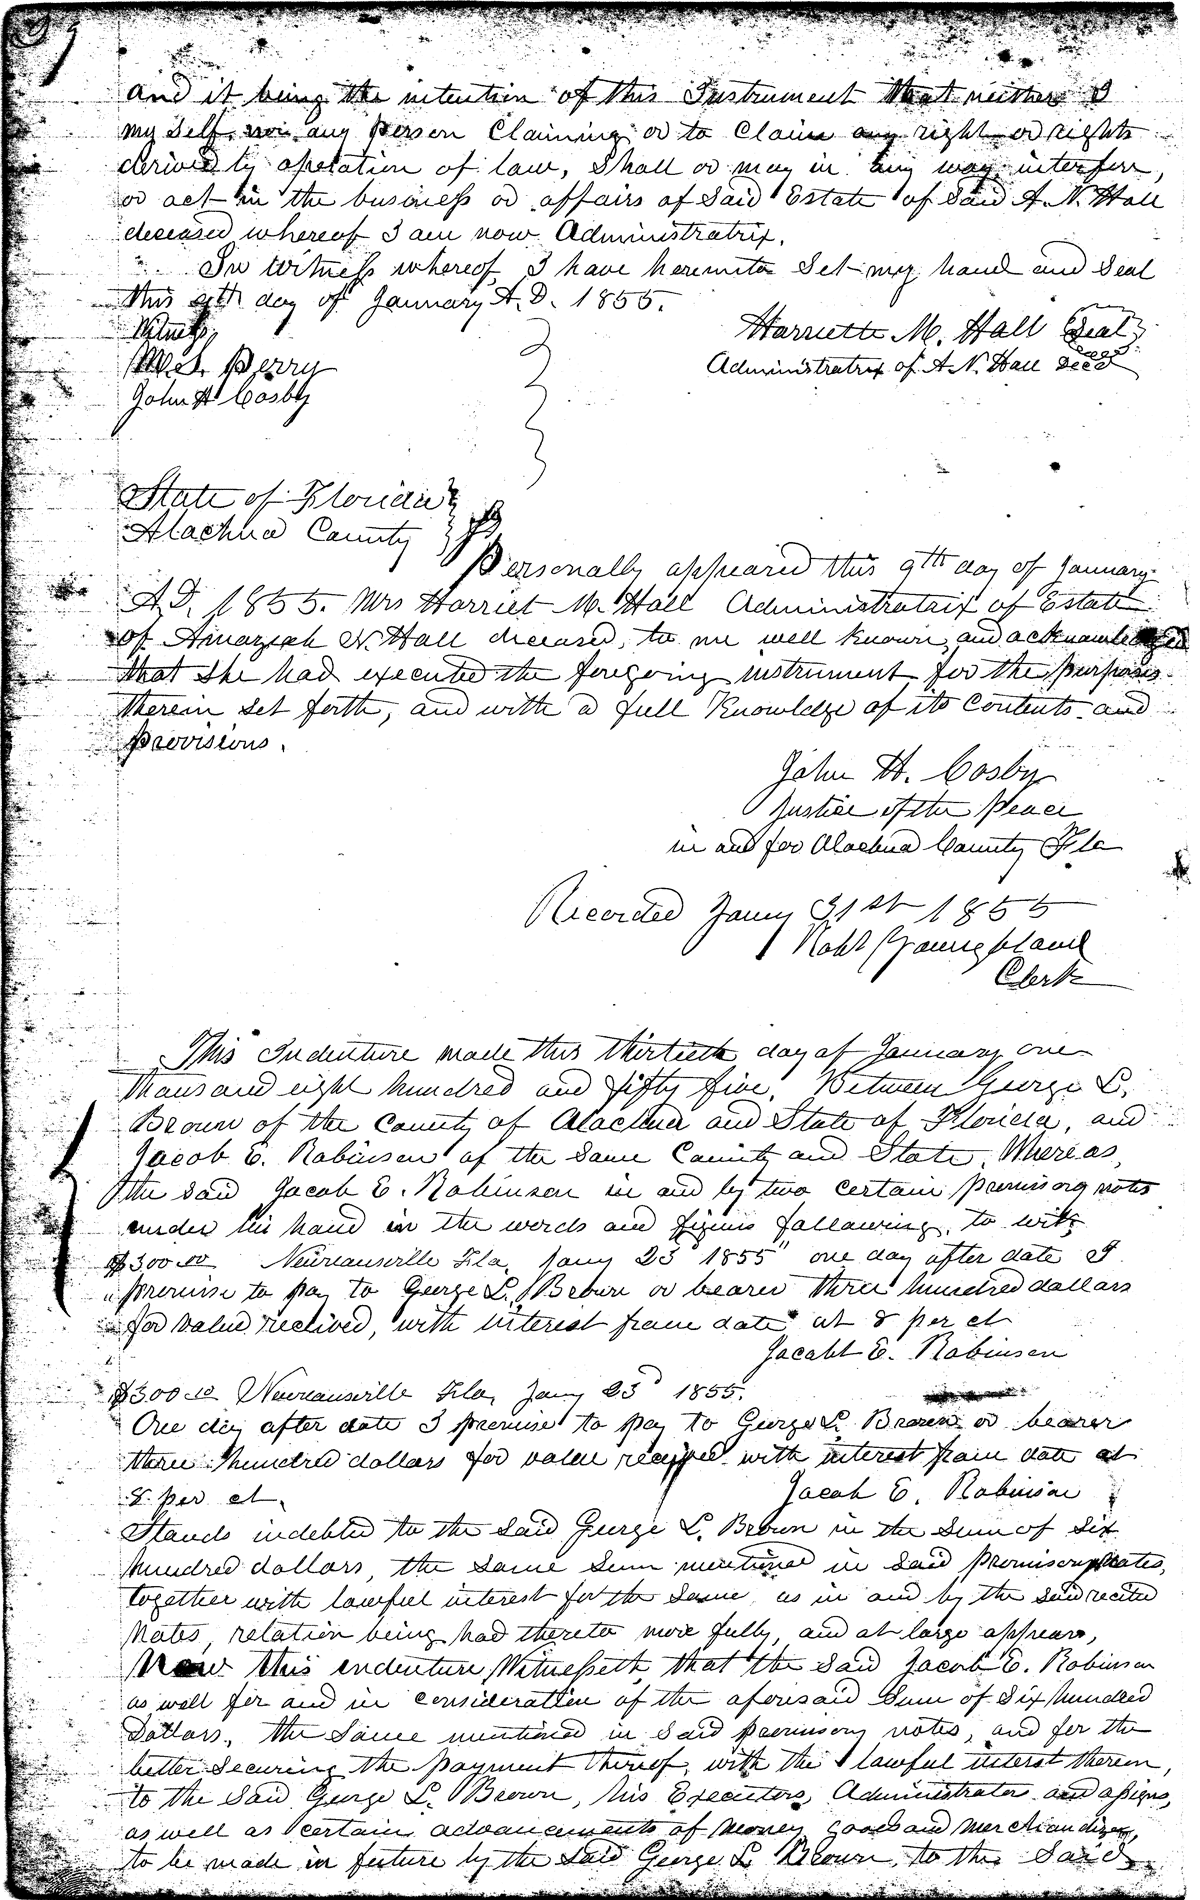 and it being the intention of this Instrument that neither I
my self, nor any person Claiming or to Claim any right or rights
derived by opetation of law, Shall or may in any way interfere,
or act in the business or affairs of Said Estate of Said A. N. Hall
deceased whereof I am now Administratrix.
In Witness whereof, I have hereunto Set my hand and Seal
this 9th day of January A.D. 1855.
Witness,
Harriette M. Hall Seal
Perry
Administratrix of A N. Hall Decd
John H Cosby
State of Florida
Alachua County
Personally appeared this 9th day of January
A.D. 1855. Mrs Harriet M. Hall Administratrix of Estate
of Amaziah N. Hall deceased, to me well known, and acknowledged
that She had executed the foregoing instrument for the purposes
therein set forth, and with a full Knowledge of its Contents and
provisions.
John H. Cosby
Justice of the Peace
in and for Alachua County Fla
Recorded Jany 31st 1855
Robt Youngblood
Clerk
This Indenture made this thirtieth day of January one
thousand eight hundred and fifty five, Between George L.
Brown of the County of Alachua and State of Florida, and
Jacob E. Robinson of the Same County and State. Whereas,
the said Jacob E. Robinson in and by two certain promisory notes
under his hand in the words and figures following, to wit;
$300.00 Newnansville Fla, Jany 23d 1855 one day after date I
promise to pay to George L. Brown or bearer three hundred dollars
for value received, with interest from date at 8 per ct
Jacob E. Robinson
$300.00 Newnansville Fla, Jany 23d 1855.
One day after date I promise to pay to George L. Brown or bearer
three hundred dollars for value received with interest from date at
8 per ct. Jacob E. Robinson
Stands indebted to the said George L. Brown in the Sum of Six
hundred dollars, the Same Sum mentioned in Said promisory notes,
together with lawful interest for the Same, as in and by the Said recited
Notes, relation being had thereto more fully, and at large appears,
Now this indenture Witnesseth that the Said Jacob E. Robinson
as well for and in consideration of the aforesaid Sum of Six hundred
Dollars, the Same mentioned in Said promisory notes, and for the
better securing the payment thereof, with the lawful interst therein,
to the Said George L. Brown, his Executors, Administrators and assigns,
as well as certain advancements of money goods and merchandizes,
to be made in future by the Said George L Brown, to the Said